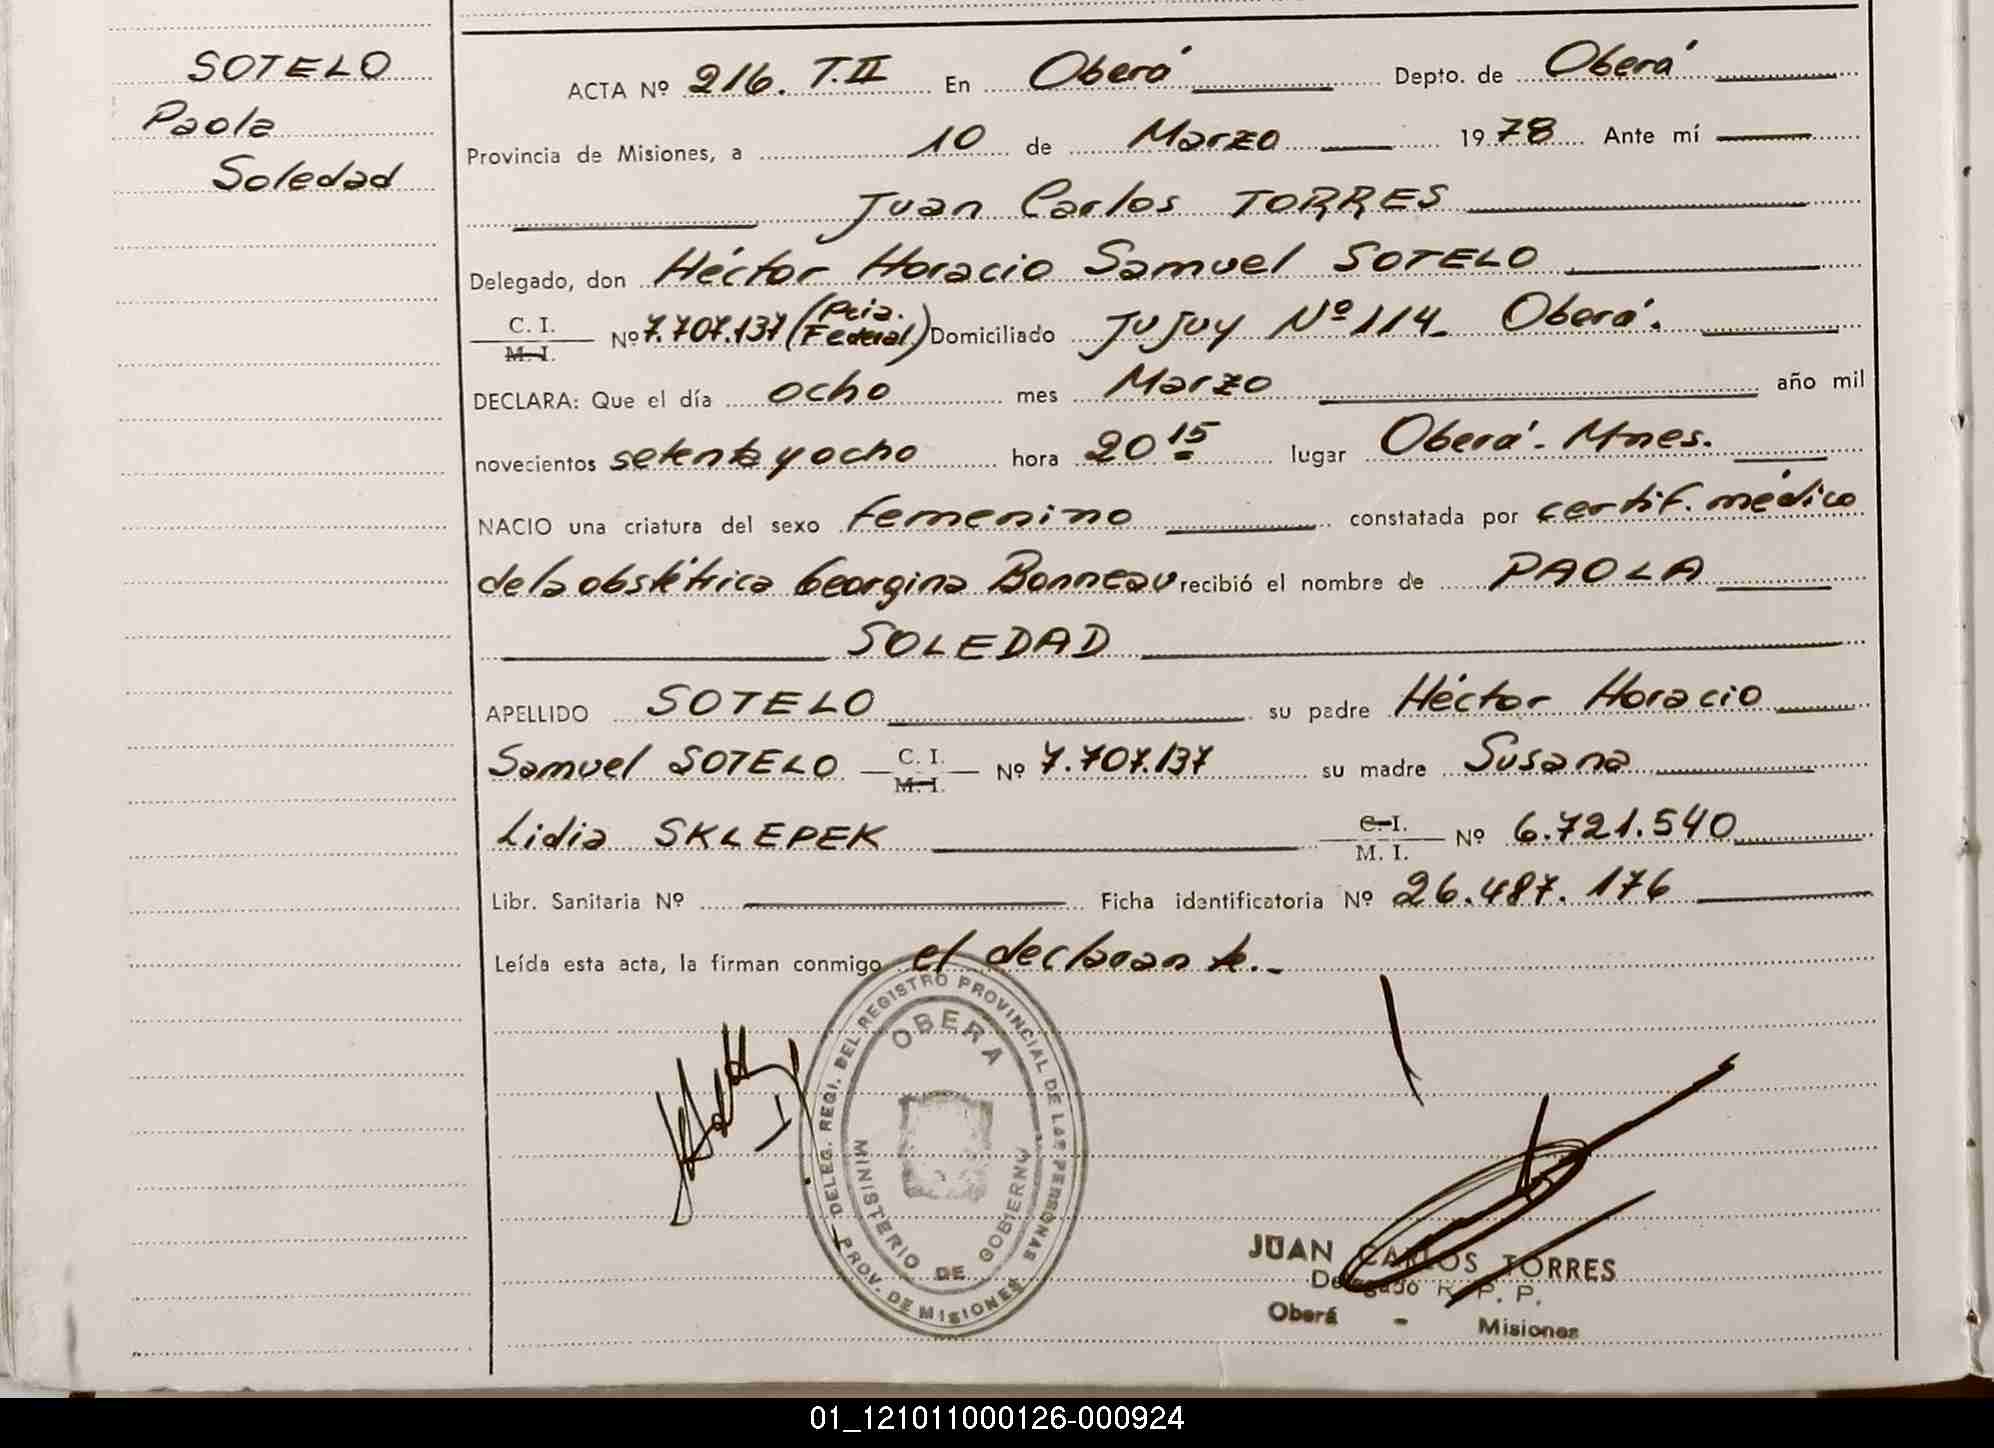 SOTELO
Paola
Soledad
ACTA Nº 216. T.II En Oberá Depto. de Oberá
Provincia de Misiones, a 10 de Marzo 1978 Ante mí
Juan Carlos TORRES
Delegado, don Héctor Horacio Samuel SOTELO
C. I. M. I. Nº 7.707.137 (Pcia. Federal) Domiciliado Jujuy Nº 114. Oberá.
DECLARA: Que el día ocho mes Marzo año mil
novecientos setenta y ocho hora 20 15 lugar Oberá. Mnes.
NACIO una criatura del sexo femenino constatada por certif. médico
de la obstétrica Georgina Bonneau recibió el nombre de PAOLA
SOLEDAD
APELLIDO SOTELO su padre Héctor Horacio
Samuel SOTELO C. I. M. I. Nº 7.707.137 su madre Susana
Lidia SKLEPEK C. I. M. I. Nº 6.721.540
Libr. Sanitaria Nº Ficha identificatoria Nº 26.487.176
Leída esta acta, la firman conmigo el declarante.-
DELEG. REGI. DEL REGISTRO PROVINCIAL DE LAS PERSONAS
OBERA
MINISTERIO DE GOBIERNO
PROV. DE MISIONES
JUAN CARLOS TORRES
Delegado R. P. P.
Oberá - Misiones
01_121011000126-000924